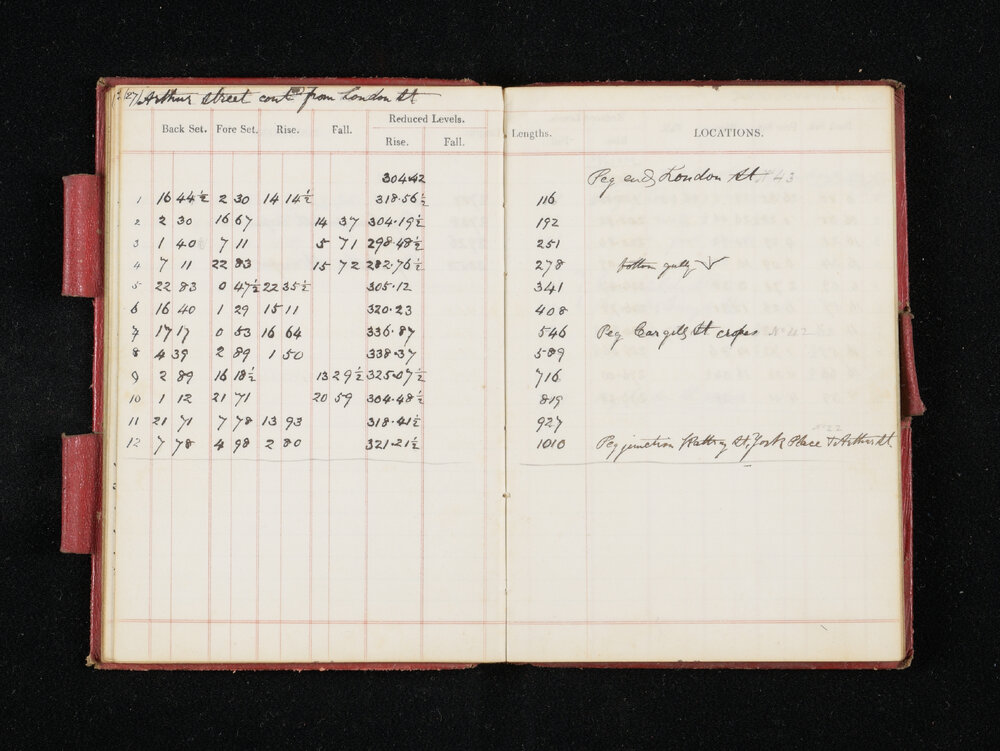 (27) Arthur Street contd from London St
Back Set. Fore Set. Rise. Fall. Reduced Levels. Lengths. LOCATIONS.
Rise. Fall.
304.42 Peg end London St No 43
1 16 44½ 2 30 14 14½ 318.56½ 116
2 2 30 16 67 14 37 304.19½ 192
3 1 40 7 11 5 71 298.48½ 251
4 7 11 22 83 15 72 282.76½ 278 bottom gully
5 22 83 0 47½ 22 35½ 305.12 341
6 16 40 1 29 15 11 320.23 408
7 17 17 0 53 16 64 336.87 546 Peg Cargill St cross No 42
8 4 39 2 89 1 50 338.37 589
9 2 89 16 18½ 13 29½ 325.07½ 716
10 1 12 21 71 20 59 304.48½ 819
11 21 71 7 78 13 93 318.41½ 927
No 22
12 7 78 4 98 2 80 321.21½ 1010 Peg junction Rattray St, York Place & Arthur St